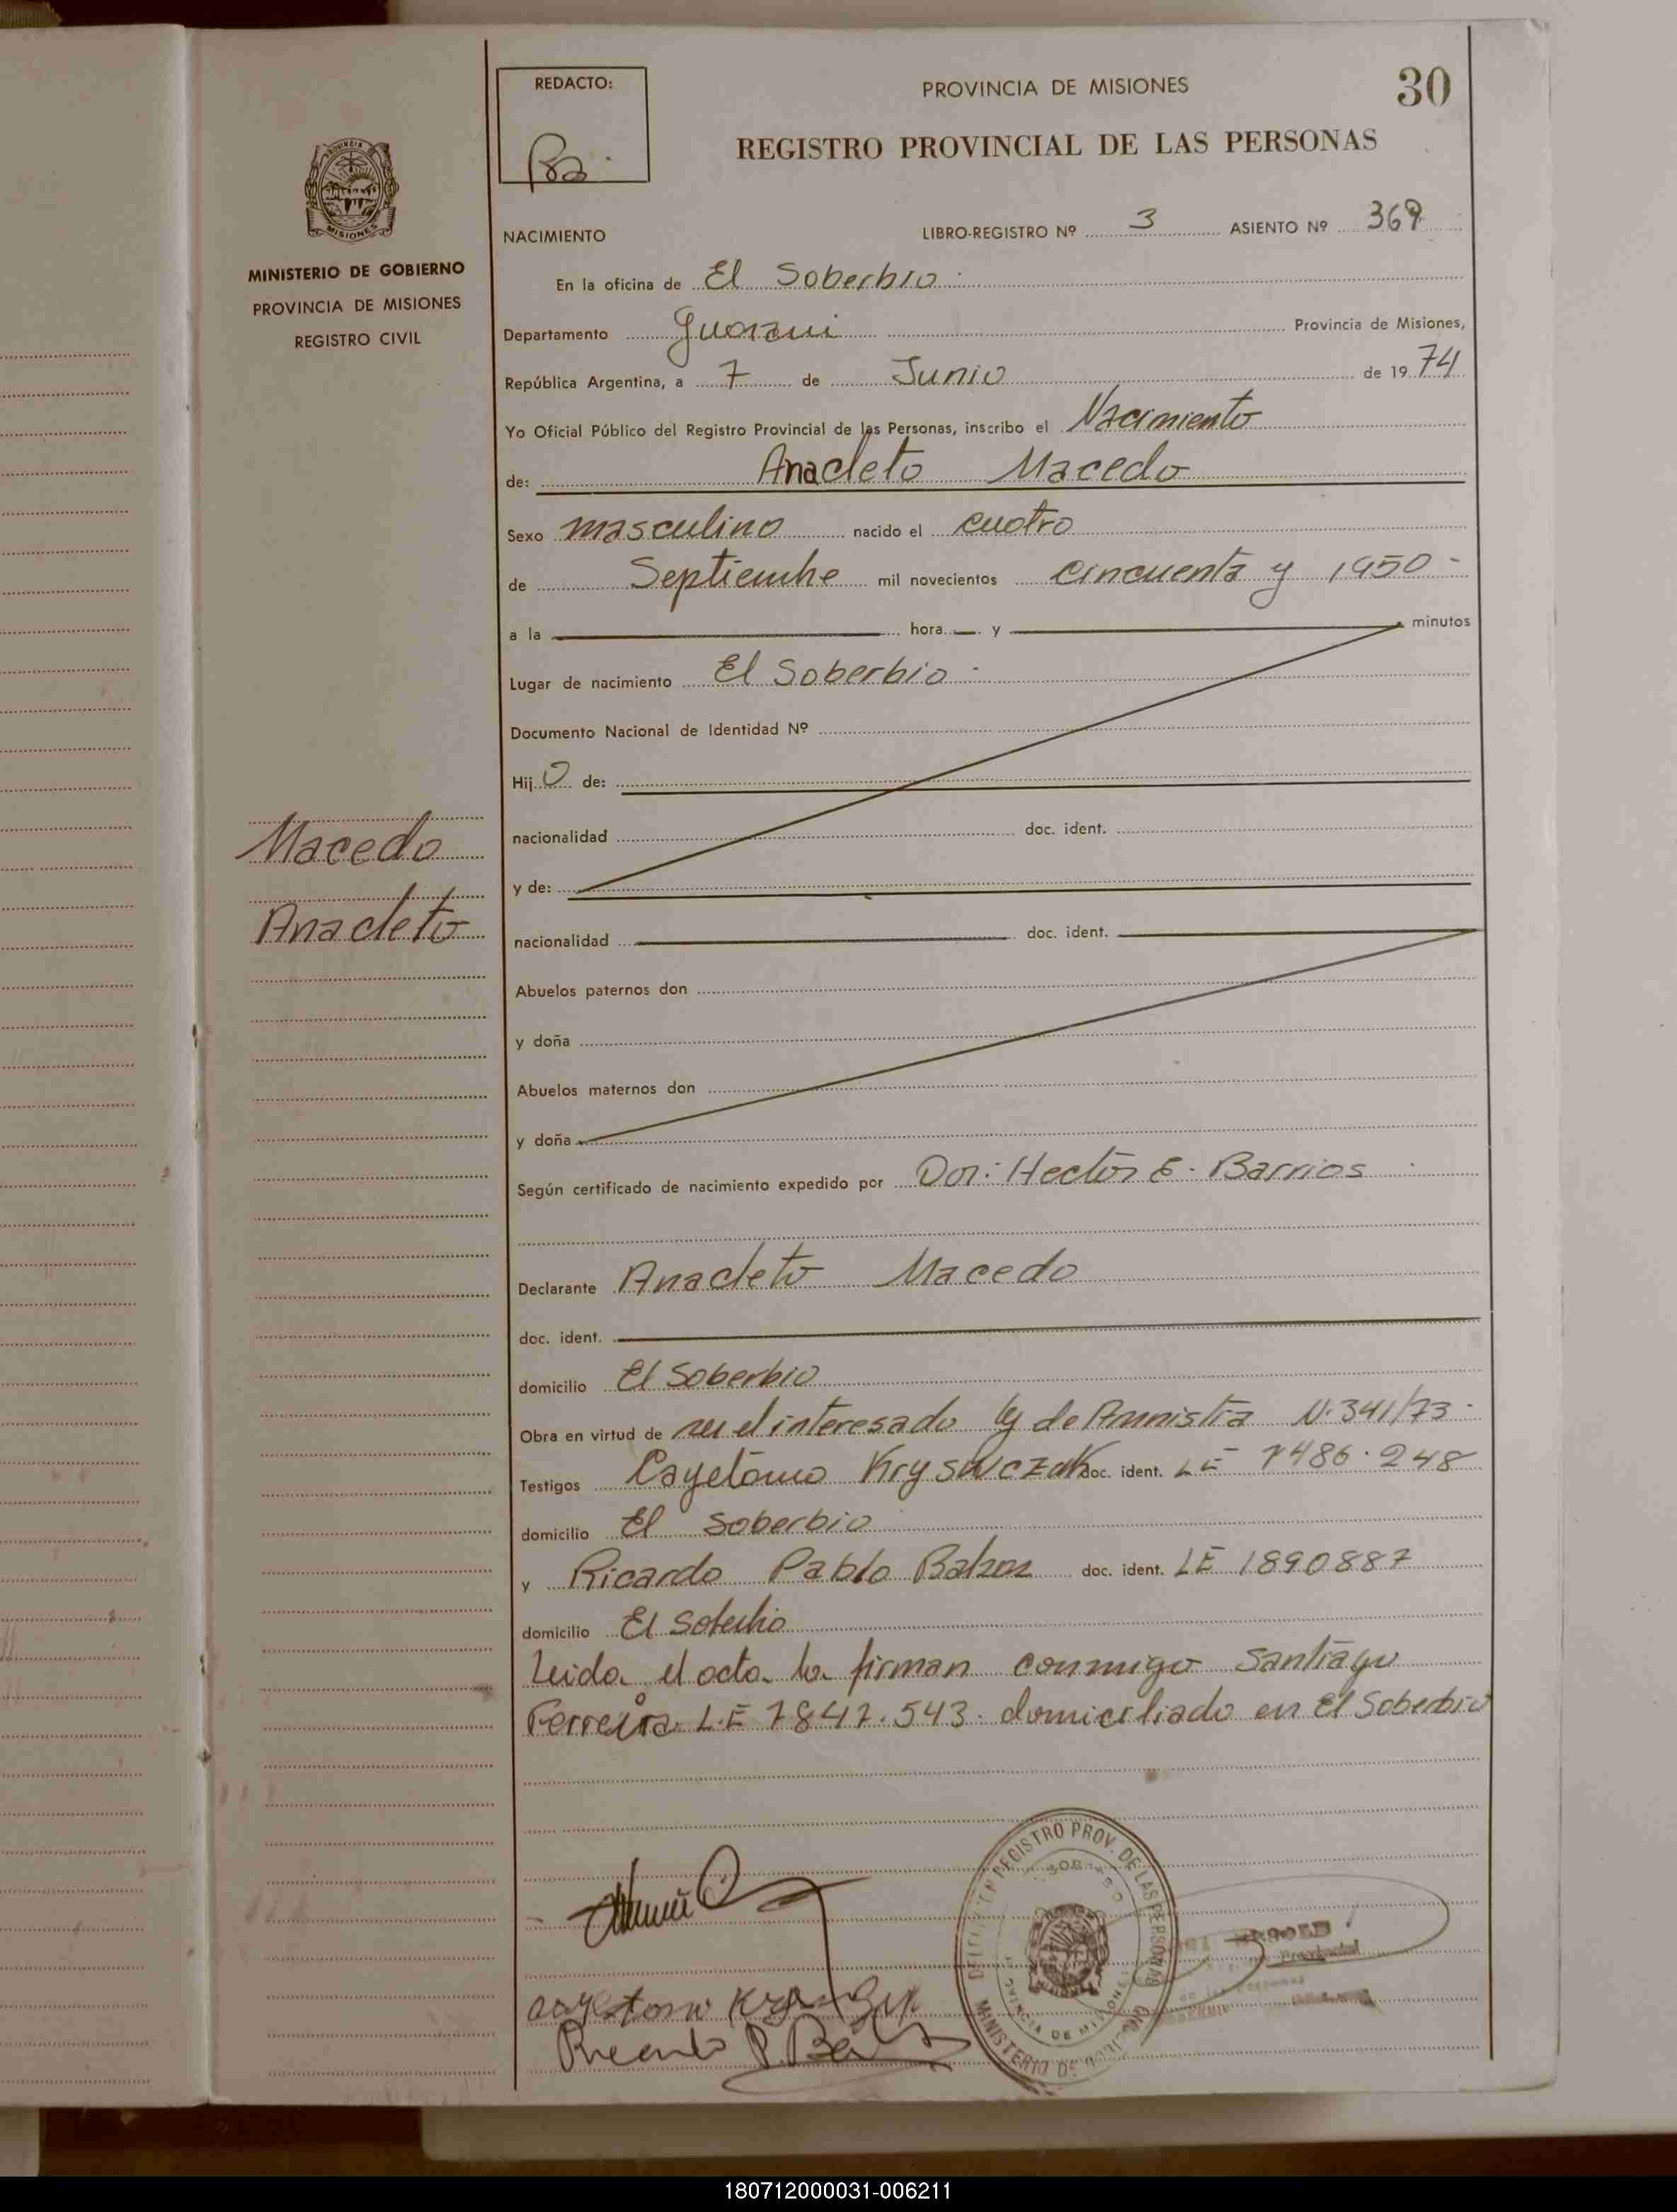 REDACTO:
PROVINCIA DE MISIONES
30
REGISTRO PROVINCIAL DE LAS PERSONAS
MISIONES
MINISTERIO DE GOBIERNO
PROVINCIA DE MISIONES
REGISTRO CIVIL
NACIMIENTO LIBRO-REGISTRO Nº 3 ASIENTO Nº 369
En la oficina de El Soberbio
Departamento Guarani Provincia de Misiones,
República Argentina, a 7 de Junio de 1974
Yo Oficial Público del Registro Provincial de las Personas, inscribo el Nacimiento
de: Anacleto Macedo
Sexo masculino nacido el cuatro
de Septiembre mil novecientos cincuenta y 1950 -
a la hora y minutos
Lugar de nacimiento El Soberbio
Documento Nacional de Identidad Nº
Hijo de:
nacionalidad doc. ident.
y de:
nacionalidad doc. ident.
Macedo
Anacleto
Abuelos paternos don
y doña
Abuelos maternos don
y doña
Según certificado de nacimiento expedido por Dor: Hector E. Barrios
Declarante Anacleto Macedo
doc. ident.
domicilio El Soberbio
Obra en virtud de ser el interesado ley de Amnistia N. 341/73
Testigos Cayetano doc. ident. LE 7486.248
domicilio El Soberbio
y Ricardo Pablo doc. ident. LE 1890887
domicilio El Soberbio
Leida el acta la firman conmigo Santiago
Ferreira L.E 7842.543. domiciliado en El Soberbio
REGISTRO PROV. DE LAS PERSONAS
MINISTERIO DE
Provincial
180712000031-006211